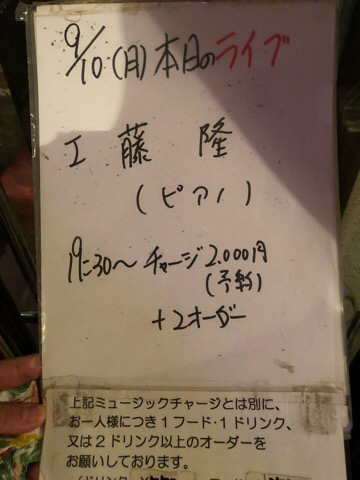 9/10 (月) 本日のライブ
工藤 隆
(ピアノ)
19:30〜 チャージ 2.000円
(予約)
+2オーダー
上記ミュージックチャージとは別に、
お一人様につき1フード・1ドリンク、
又は2ドリンク以上のオーダーを
お願いしております。